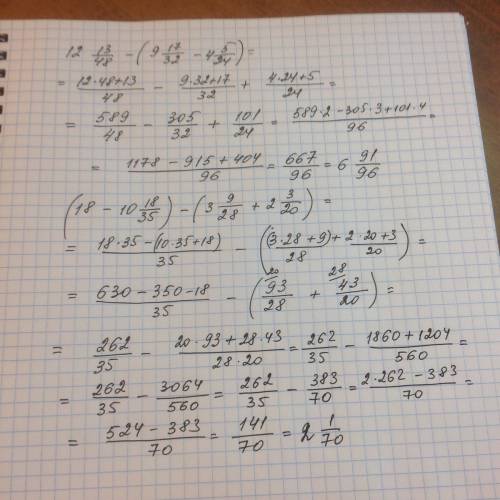 12 13/48 − (9 17/32 − 4 5/24) =
= (12·48+13)/48 − (9·32+17)/32 + (4·24+5)/24 =
= 589/48 − 305/32 + 101/24 = (589·2 − 305·3 + 101·4)/96 =
= (1178 − 915 + 404)/96 = 667/96 = 6 91/96
(18 − 10 18/35) − (3 9/28 + 2 3/20) =
= (18·35 − (10·35+18))/35 − ((3·28+9)/28 + (2·20+3)/20) =
= (630 − 350 − 18)/35 − (20 93/28 + 28 43/20) =
= 262/35 − (20·93 + 28·43)/(28·20) = 262/35 − (1860 + 1204)/560 =
= 262/35 − 3064/560 = 262/35 − 383/70 = (2·262 − 383)/70 =
= (524 − 383)/70 = 141/70 = 2 1/70